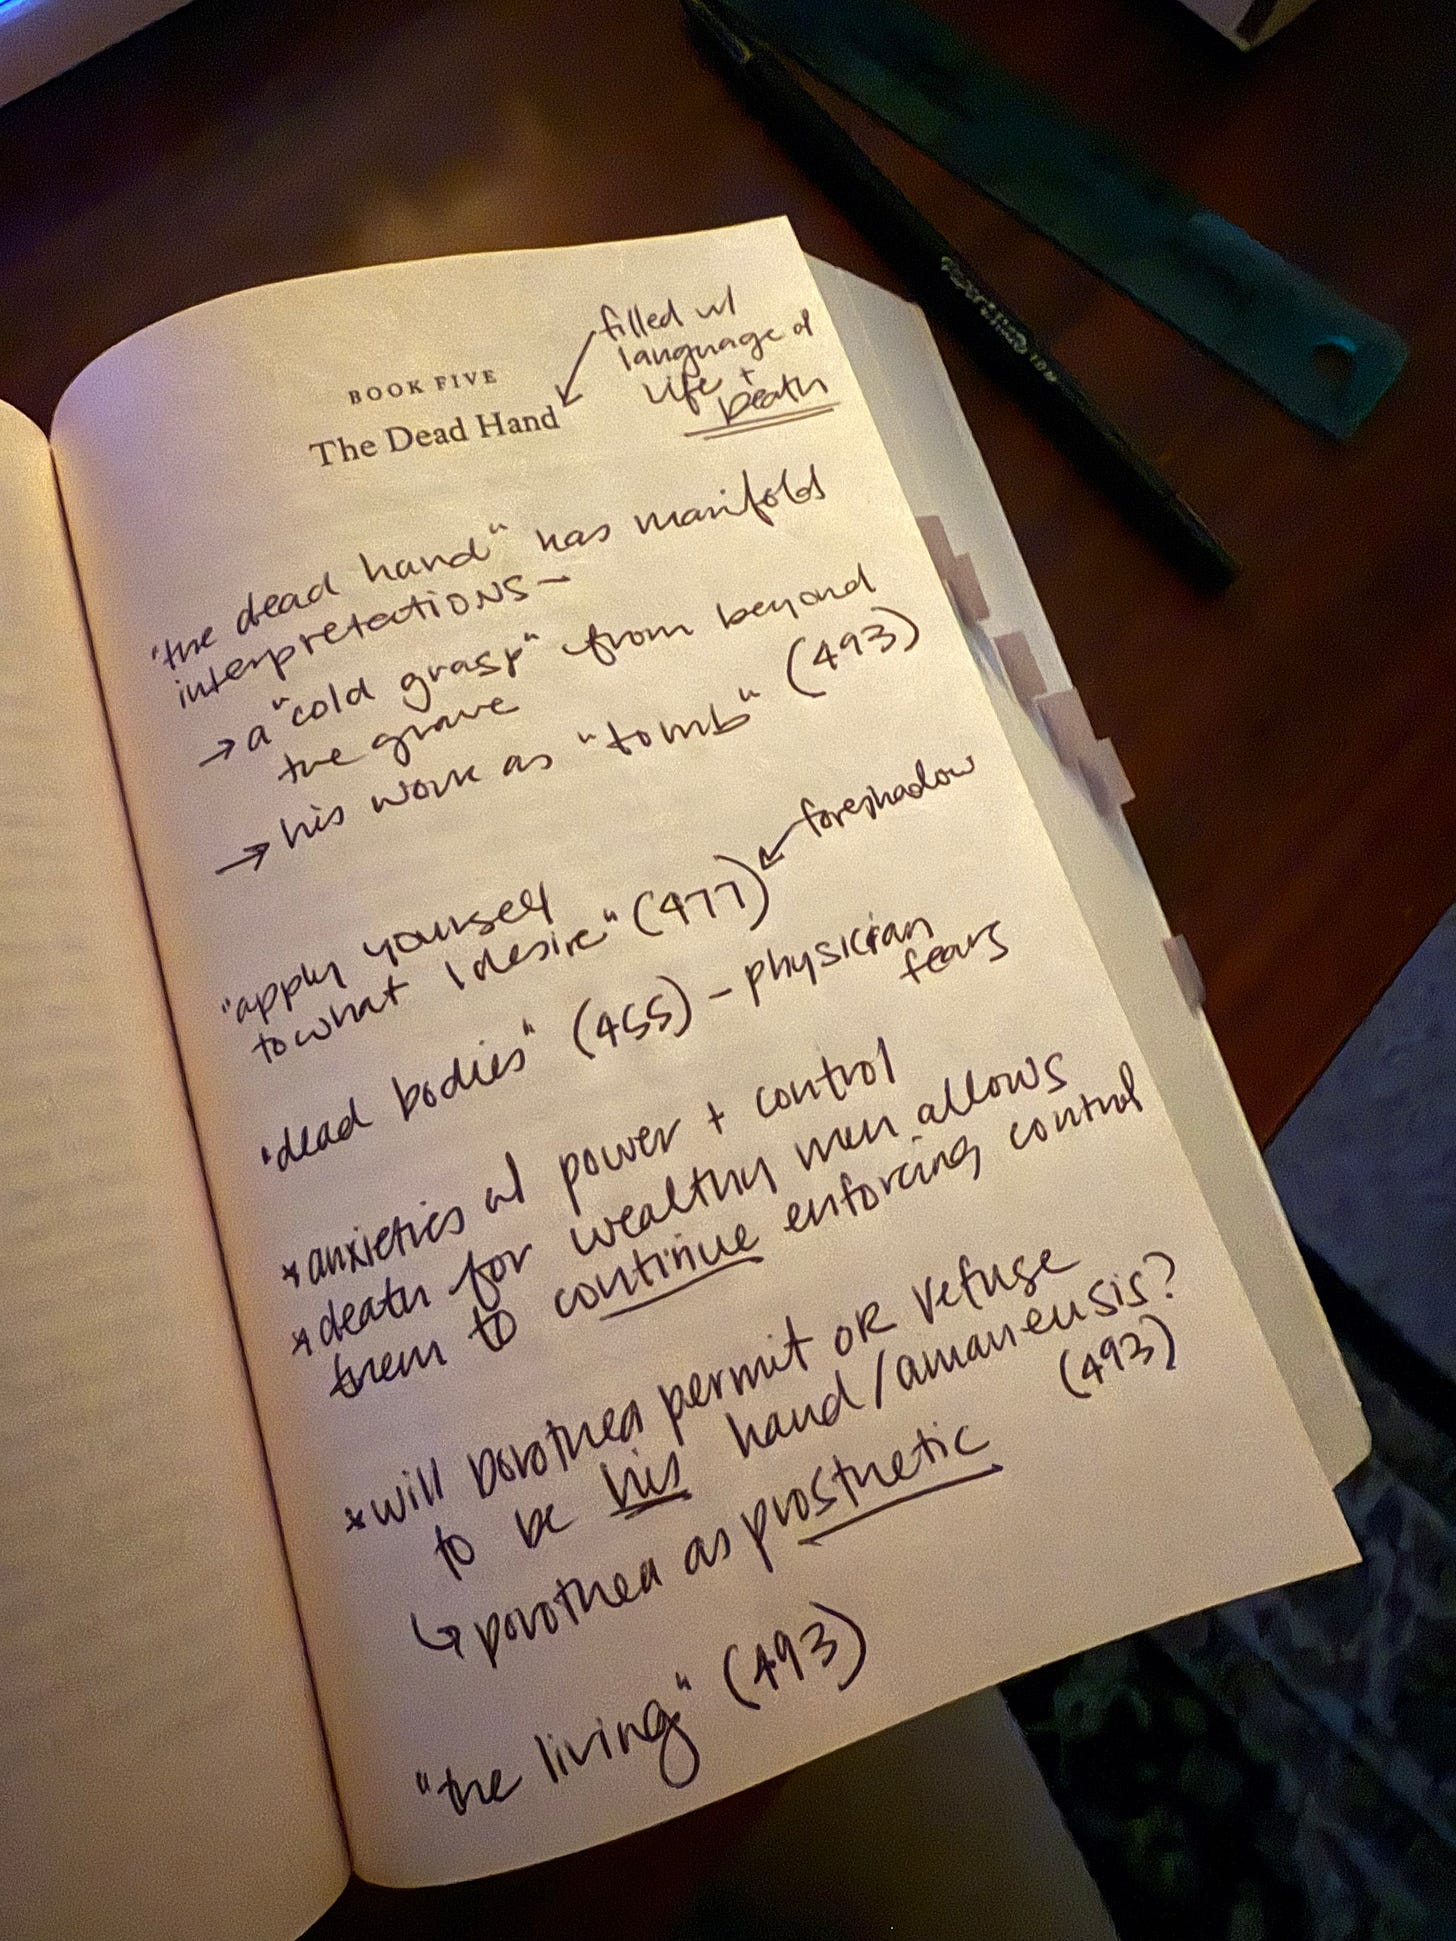 BOOK FIVE
The Dead Hand
filled w/
language of
life +
Death
"the dead hand" has manifold
interpretations—
→ a "cold grasp" from beyond
the grave
→ his work as "tomb" (493)
"apply yourself
to what I desire" (477)
foreshadow
"dead bodies" (455) - physician
fears
* anxieties w/ power + control
* death for wealthy men allows
them to continue enforcing control
* will Dorothea permit or refuse
to be his hand/amanuensis?
(493)
↳ Dorothea as prosthetic
"the living" (493)